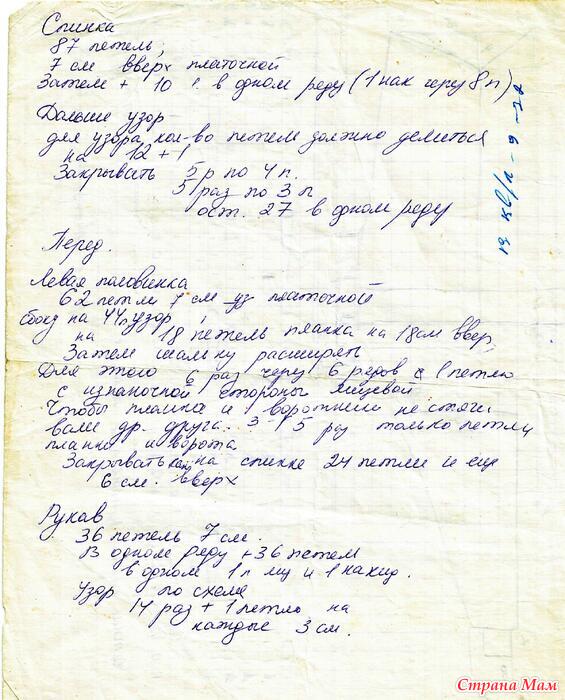 Спинка
87 петель,
7 см вверх платочной
Затем + 10 п. в одном реду (1 нак черу 8 п)
Дальше узор
для узора кол-во петель должно делиться
на 12 + 1
Закрывать 5 р по 4 п.
5 раз по 3 п
ост. 27 в одном реду
Перед.
Левая половинка
62 петли 7 см уз платочной
сбоку на 44 п узор,
на 18 петель планка на 18 см ввер
Затем шальку расширять
Для этого 6 раз черу 6 редов с 1 петлю
с изнаночной стороны лицевой
Чтобы планка и воротник не стяги
вали др. друга 3 - 5 раз только петли
планки и ворота
Закрывать как на спинке 24 петли и еще
6 см. вверх
Рукав
36 петель 7 см.
В одном реду + 36 петель
в одном 1 п лиц и 1 накид.
Узор по схеме
14 раз + 1 петлю на
каждые 3 см.
19 кв/л - 9 -
Страна Мам